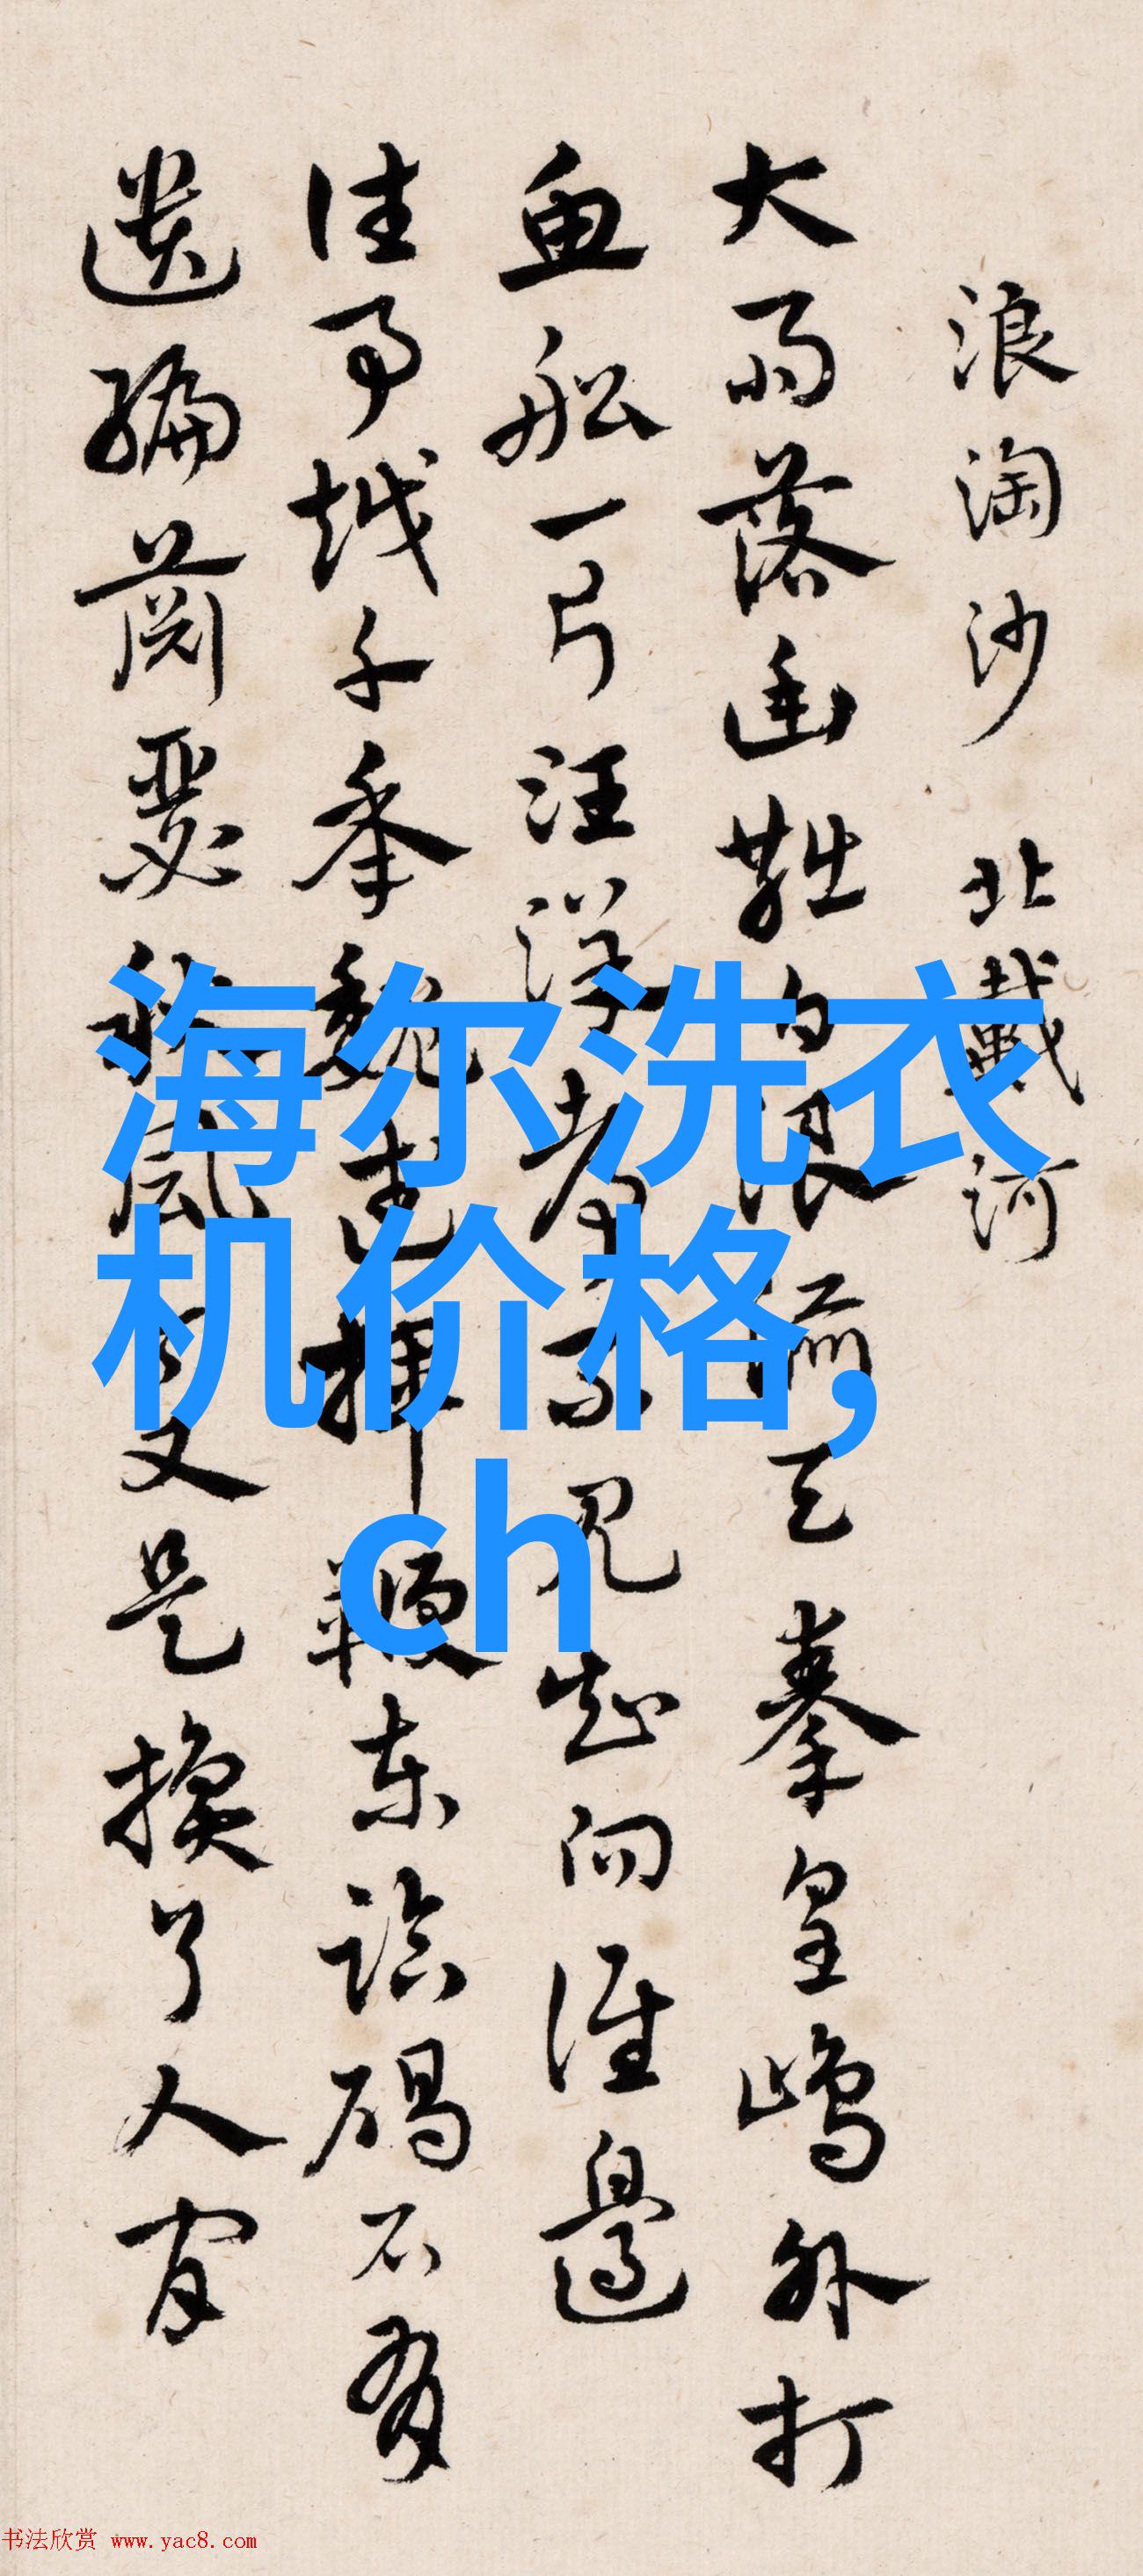 浪淘沙 北戴河
大雨落幽燕白浪滔天秦皇島外打
魚船一片汪洋都不見知向誰邊
往事越千年魏武揮鞭東臨碣石有
遺編蕭瑟秋風今又是換了人間
海尔洗衣
机价格,
ch
书法欣赏 www.yac8.com